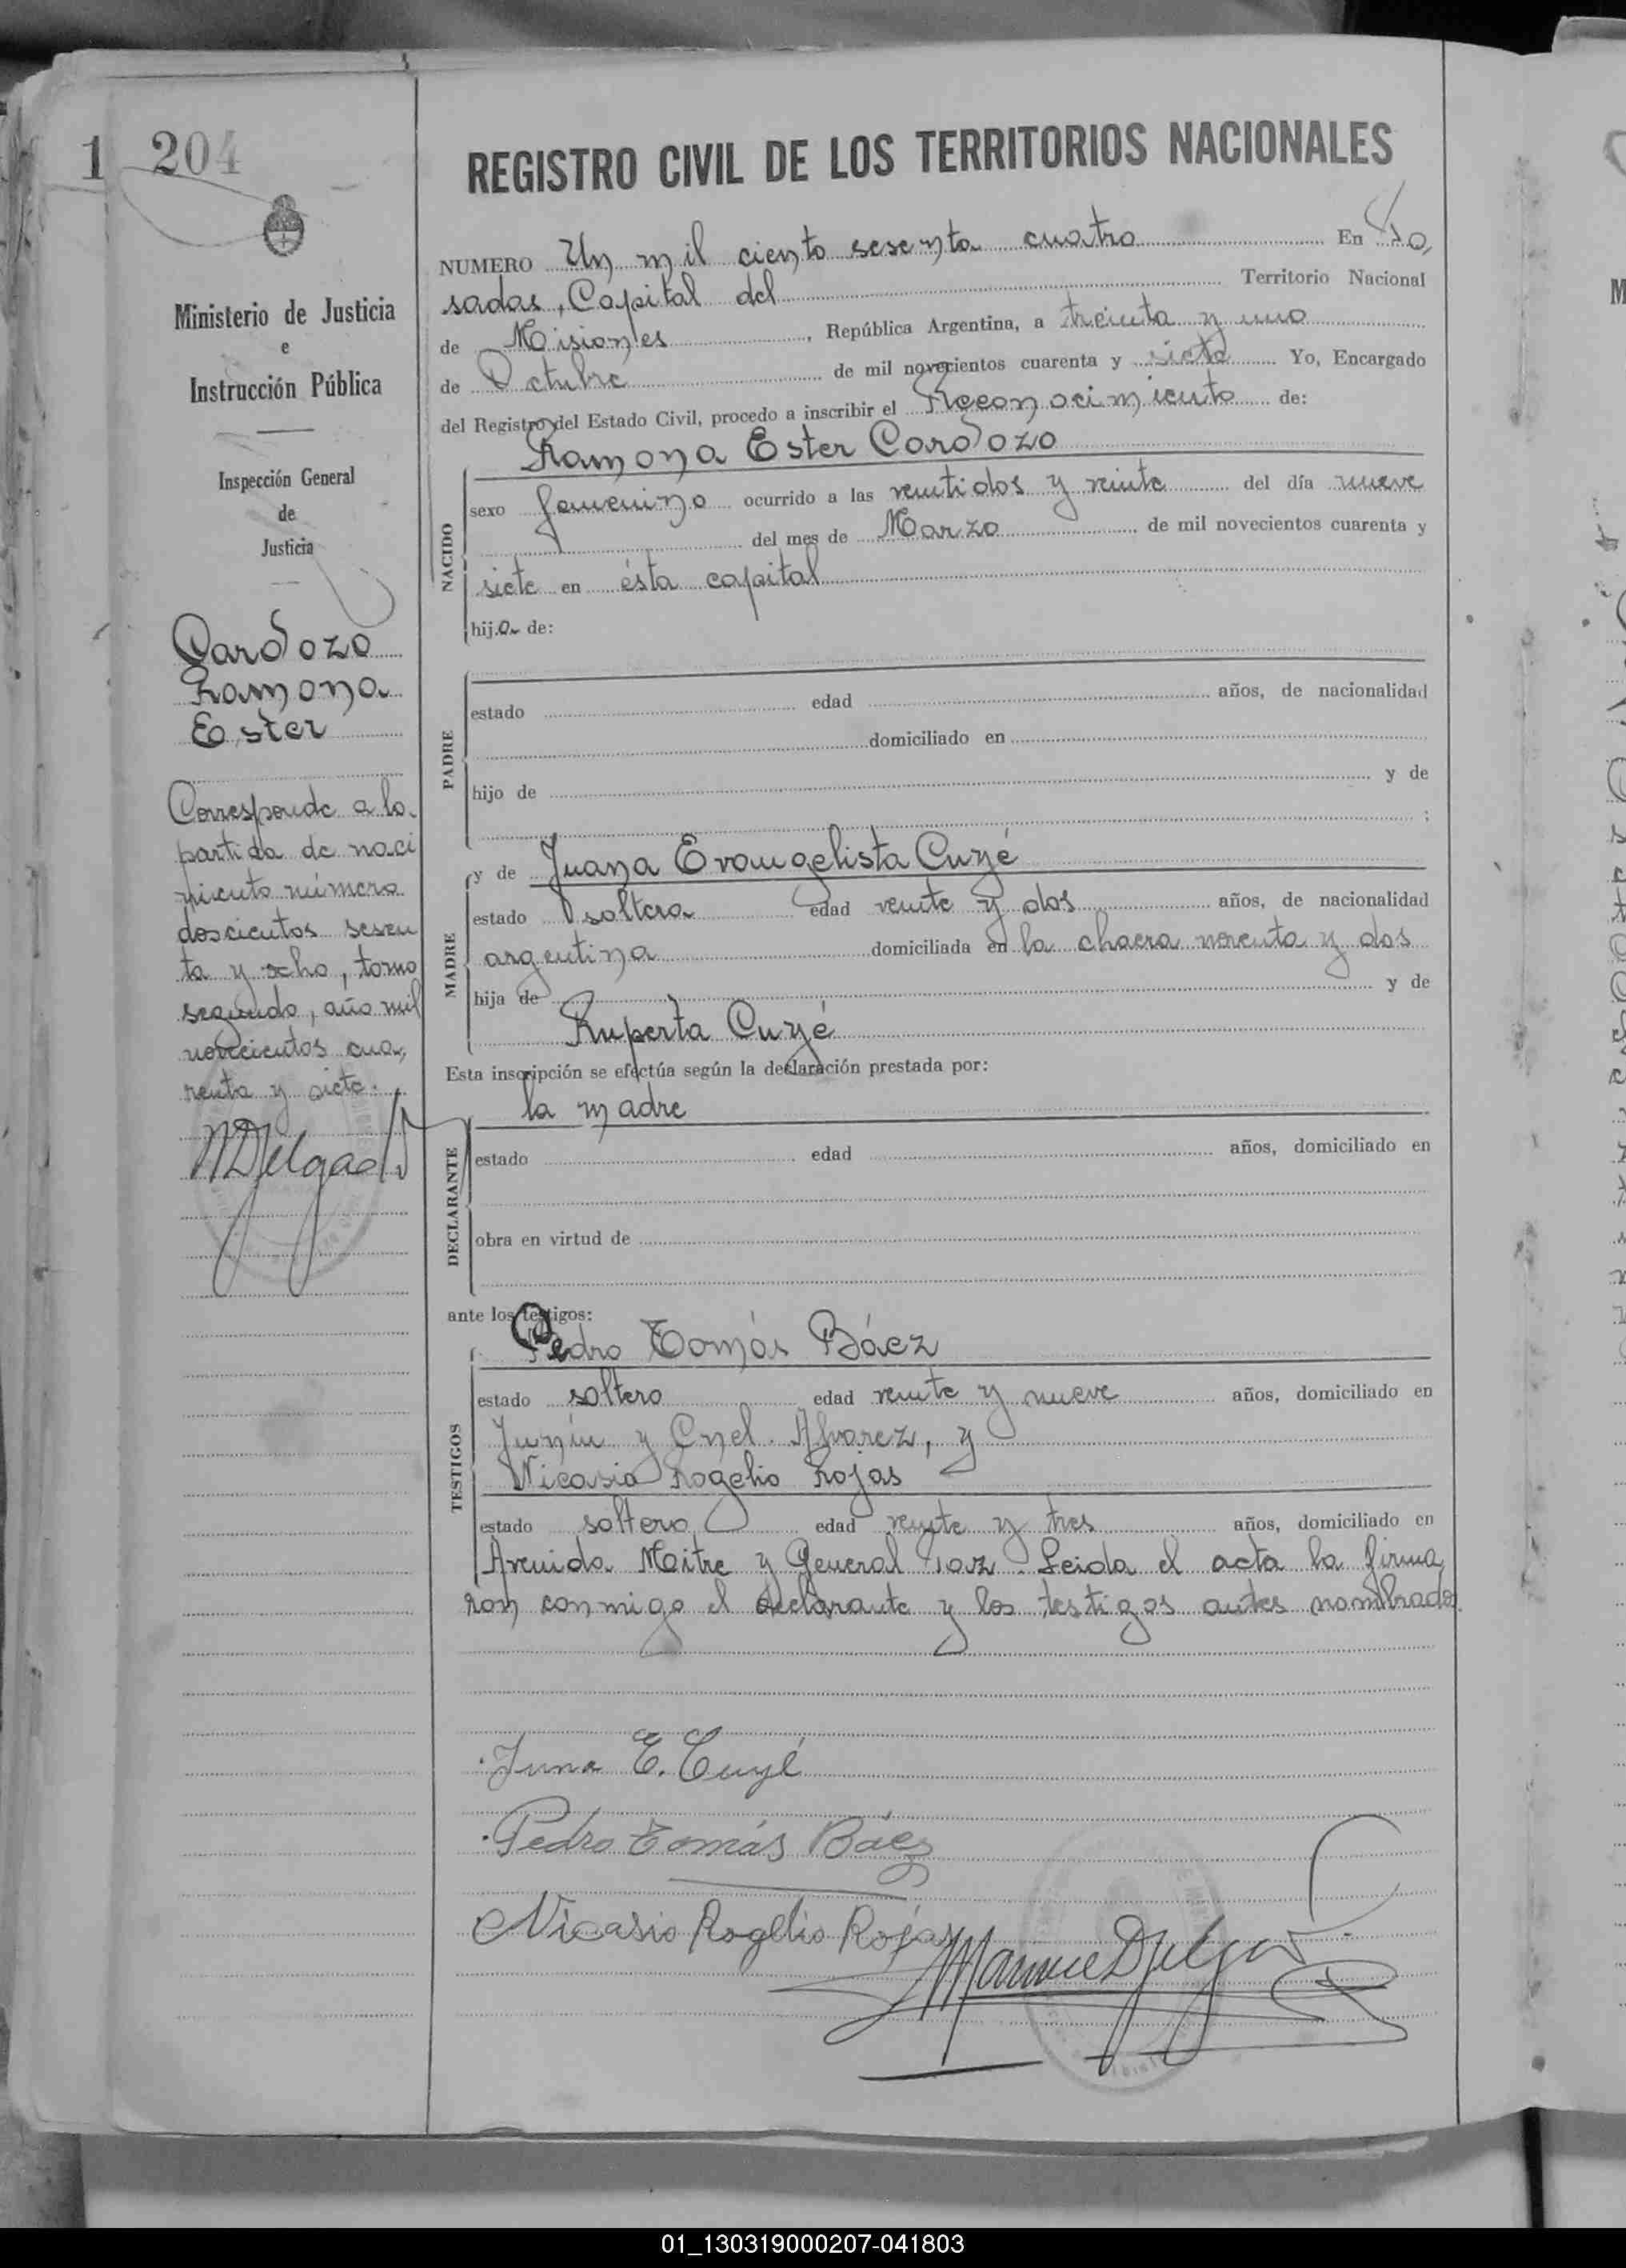 1 204
REGISTRO CIVIL DE LOS TERRITORIOS NACIONALES
NUMERO Un mil ciento sesenta cuatro En Po,
sadas, Capital del Territorio Nacional
de Misiones, República Argentina, a treinta y uno
de Octubre de mil novecientos cuarenta y siete Yo, Encargado
del Registro del Estado Civil, procedo a inscribir el Reconocimiento de:
Ramona Ester Cardozo
NACIDO
sexo femenino ocurrido a las veintidos y veinte del día nueve
del mes de Marzo de mil novecientos cuarenta y
siete en ésta capital
hija de:
PADRE
estado edad años, de nacionalidad
domiciliado en
hijo de y de
;
y de Juana Evangelista Cuyé
MADRE
estado soltera edad veinte y dos años, de nacionalidad
argentina domiciliada en la chacra noventa y dos
hija de y de
Ruperta Cuyé
Esta inscripción se efectúa según la declaración prestada por:
la madre
DECLARANTE
estado edad años, domiciliado en
obra en virtud de
ante los testigos:
Pedro Tomás Báez
TESTIGOS
estado soltero edad veinte y nueve años, domiciliado en
Junín y Cnel. Alvarez, y
Nicasio Rogelio Rojas
estado soltero edad veinte y tres años, domiciliado en
Avenida Mitre y General Paz. Leida el acta la firma
ron conmigo el declarante y los testigos antes nombrados.
Juna E. Cuyé
Pedro Tomás Báez
Nicasio Rogelio Rojas
Ministerio de Justicia
e
Instrucción Pública
Inspección General
de
Justicia
Cardozo
Ramona
Ester
Corresponde a la
partida de naci
miento número
doscientos sesen
ta y ocho, tomo
segundo, año mil
novecientos cua,
renta y siete.
MDelgado
01_130319000207-041803